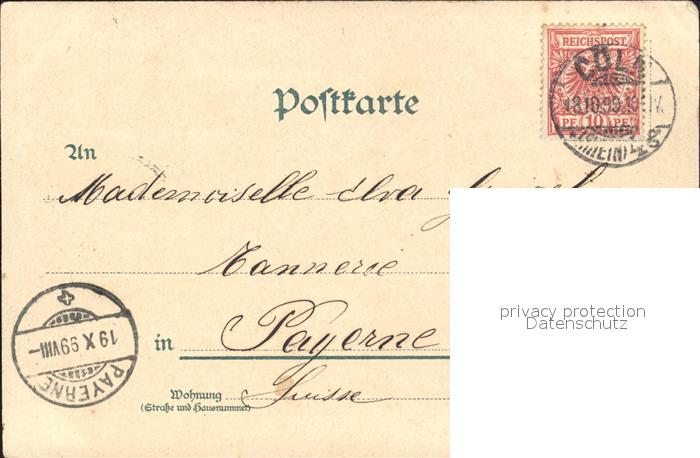 REICHSPOST
CÖLN
18.10.99.
PF 10 PF
(RHEIN)
Postkarte
An
Mademoiselle
Tannerie
privacy protection
Datenschutz
19 X 99 VIII–
PAYERNE
in Payerne
Wohnung
(Straße und Hausnummer)
Suisse